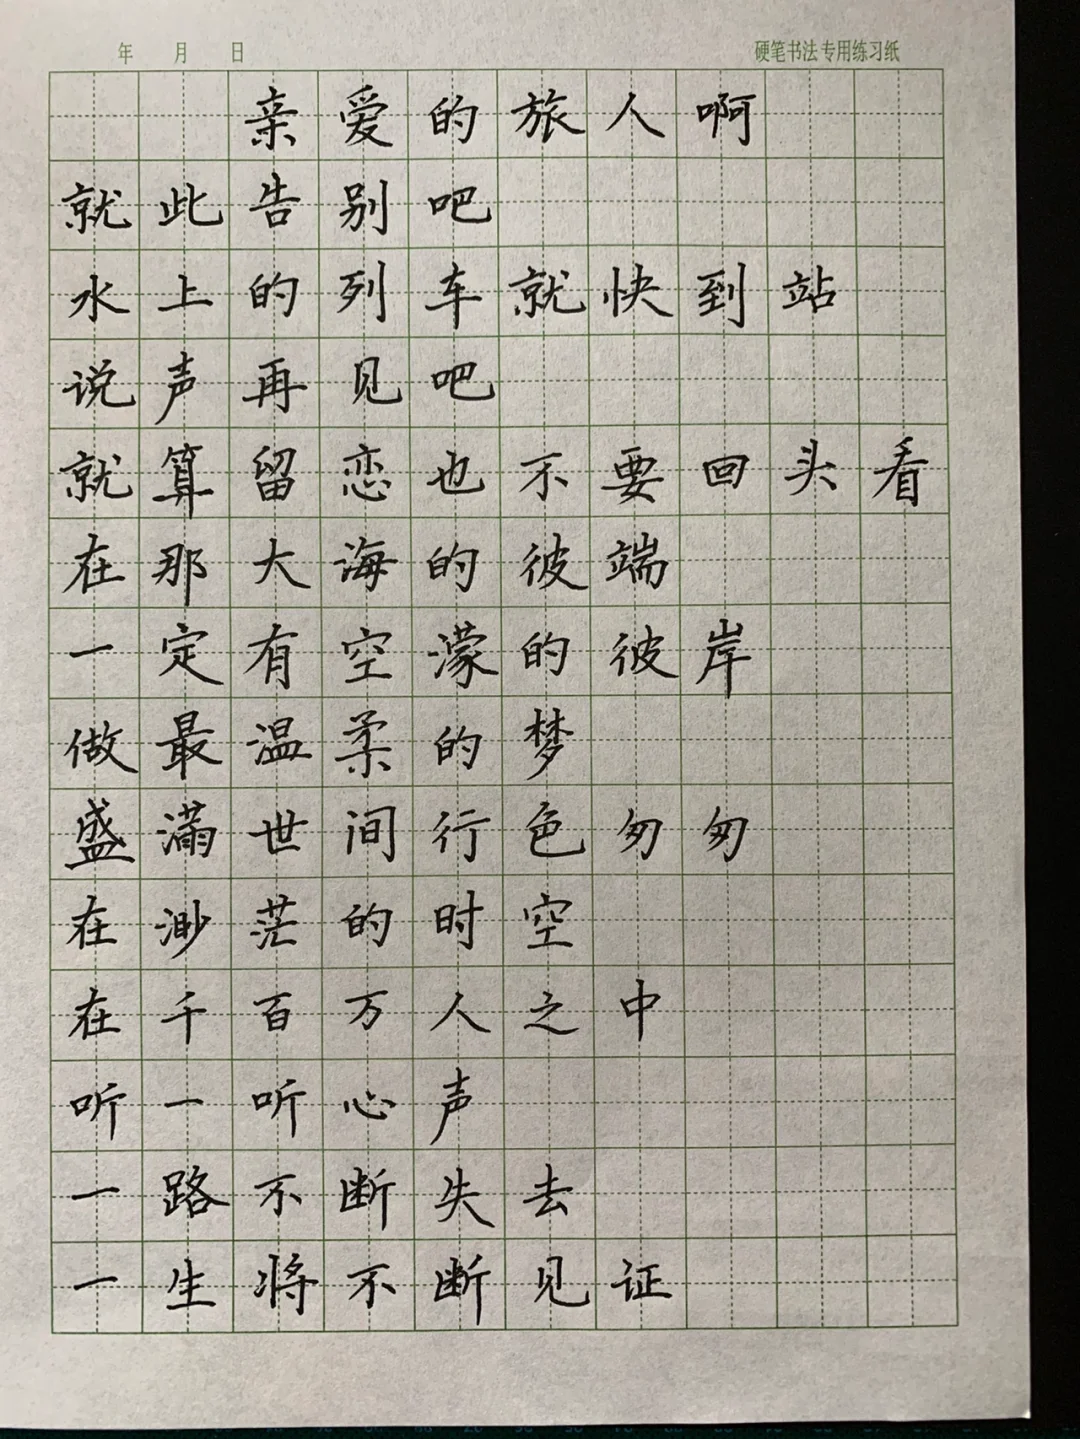 年 月 日 硬笔书法专用练习纸
亲爱的旅人啊
就此告别吧
水上的列车就快到站
说声再见吧
就算留恋也不要回头看
在那大海的彼端
一定有空濛的彼岸
做最温柔的梦
盛满世间行色匆匆
在渺茫的时空
在千百万人之中
听一听心声
一路不断失去
一生将不断见证